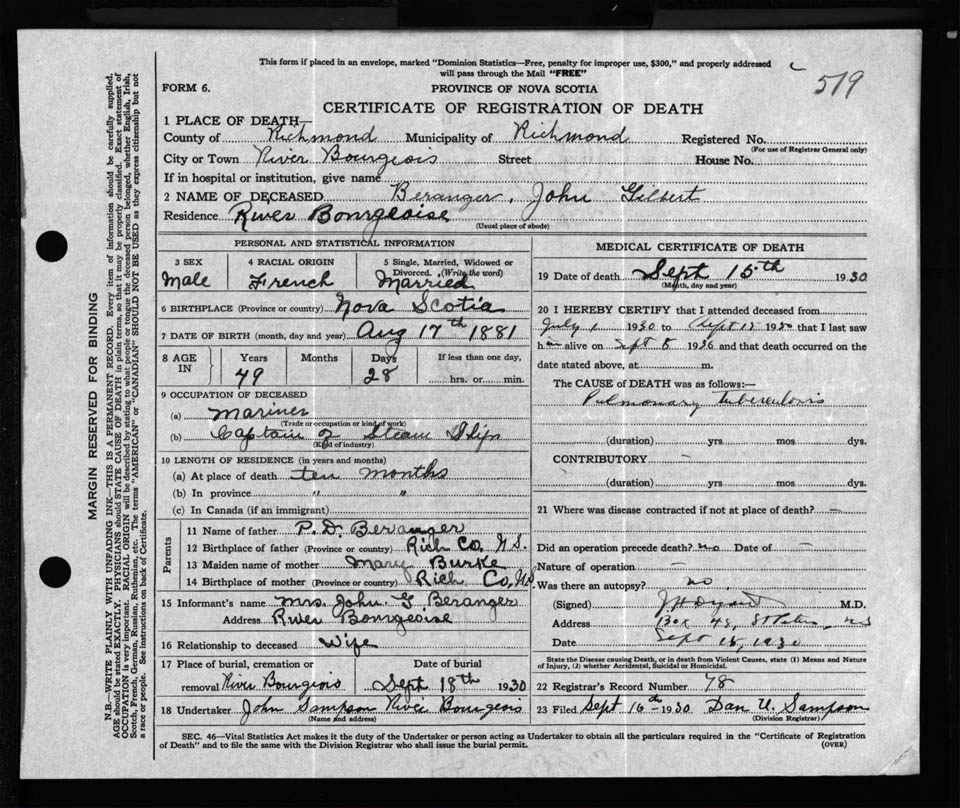 This form if placed in an envelope, marked "Dominion Statistics—Free, penalty for improper use, $300," and properly addressed
will pass through the Mail "FREE"
519
FORM 6.
PROVINCE OF NOVA SCOTIA
CERTIFICATE OF REGISTRATION OF DEATH
1 PLACE OF DEATH
County of Richmond Municipality of Richmond Registered No.
(For use of Registrar General only)
City or Town River Bourgeois Street House No.
If in hospital or institution, give name
2 NAME OF DECEASED Beranger, John Gilbert
Residence River Bourgeoise
(Usual place of abode)
PERSONAL AND STATISTICAL INFORMATION
3 SEX 4 RACIAL ORIGIN 5 Single, Married, Widowed or
Divorced. (Write the word)
Male French Married
6 BIRTHPLACE (Province or country) Nova Scotia
7 DATE OF BIRTH (month, day and year) Aug 17th 1881
8 AGE IN Years Months Days If less than one day,
49 28 hrs. or min.
9 OCCUPATION OF DECEASED
(a) Mariner
(Trade or occupation or kind of work)
(b) Captain of Steam Ship
(Kind of industry)
10 LENGTH OF RESIDENCE (in years and months)
(a) At place of death ten months
(b) In province " "
(c) In Canada (if an immigrant)
Parents
11 Name of father P. D. Beranger
12 Birthplace of father (Province or country) Rich Co. N.S.
13 Maiden name of mother Mary Burke
14 Birthplace of mother (Province or country) Rich. Co, N.S.
15 Informant's name Mrs. John G. Beranger
Address River Bourgeoise
16 Relationship to deceased Wife
17 Place of burial, cremation or Date of burial
removal River Bourgeois Sept 18th 1930
18 Undertaker John Sampson River Bourgeois
(Name and address)
MEDICAL CERTIFICATE OF DEATH
19 Date of death Sept 15th 1930
(Month, day and year)
20 I HEREBY CERTIFY that I attended deceased from
July 1 1930 to Sept 15 1930 that I last saw
h im alive on Sept 8 1930 and that death occurred on the
date stated above, at m.
The CAUSE of DEATH was as follows:—
Pulmonary tuberculosis
(duration) yrs. mos. dys.
CONTRIBUTORY
(duration) yrs. mos. dys.
21 Where was disease contracted if not at place of death? —
Did an operation precede death? no Date of —
Nature of operation —
Was there an autopsy? no
(Signed) M.D.
Address Box 45, St Peters, N.S
Date Sept 15, 1930
State the Disease causing Death, or in death from Violent Causes, state (1) Means and Nature
of Injury, (2) whether Accidental, Suicidal or Homicidal.
22 Registrar's Record Number 78
23 Filed Sept 16th 1930 Dan U. Sampson
(Division Registrar)
SEC. 46—Vital Statistics Act makes it the duty of the Undertaker or person acting as Undertaker to obtain all the particulars required in the "Certificate of Registration
of Death" and to file the same with the Division Registrar who shall issue the burial permit.
(OVER)
MARGIN RESERVED FOR BINDING
N.B.—WRITE PLAINLY WITH UNFADING INK—THIS IS A PERMANENT RECORD. Every item of information should be carefully supplied.
AGE should be stated EXACTLY. PHYSICIANS should STATE CAUSE OF DEATH in plain terms, so that it may be properly classified. Exact statement of
OCCUPATION is very important. RACIAL ORIGIN will be described by stating to what people or tongue the deceased person belonged, whether English, Irish,
Scotch, French, German, Russian, Ruthenian, etc. The terms "AMERICAN" or "CANADIAN SHOULD NOT BE USED as they express citizenship but not
a race or people. See instructions on back of Certificate.